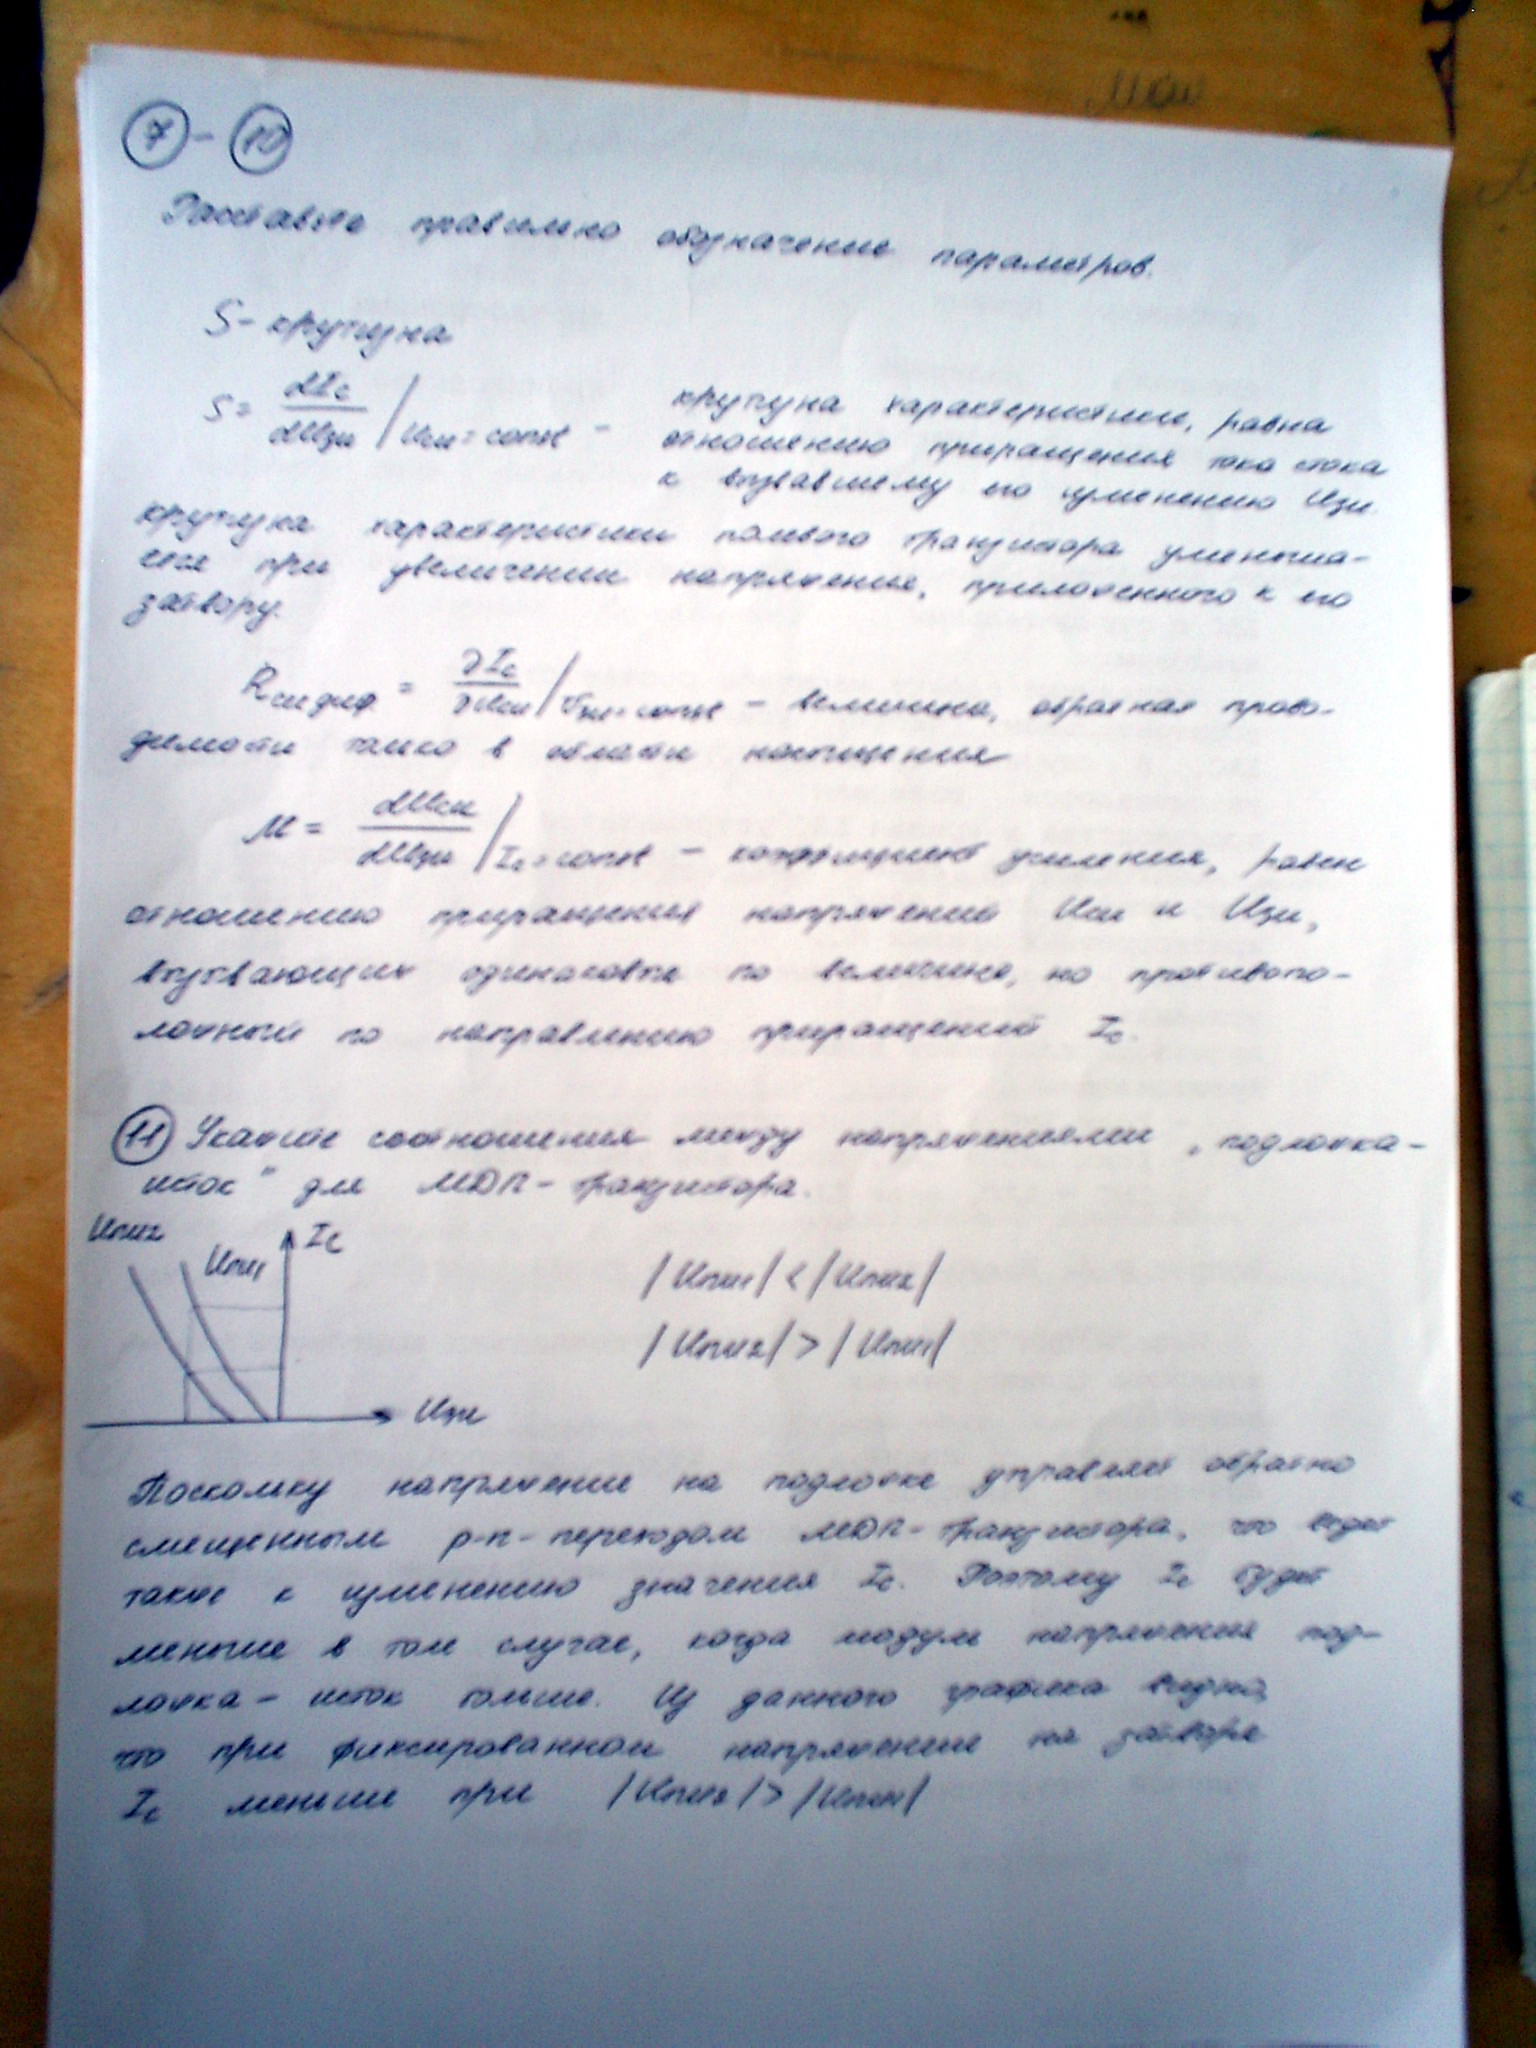 7 - 10
Расставьте правильно обозначение параметров.
S - крутизна
S = dIc / dUзи | Uси = const - крутизна характеристики, равна
отношению приращения тока стока
к вызвавшему его изменению Uзи.
крутизна характеристики полевого транзистора уменьша-
ется при увеличении напряжения, приложенного к его
затвору.
Rси диф. = ∂Ic / ∂Uси | Uзи = const - величина, обратная прово-
димости только в области насыщения
M = dUси / dUзи | Ic = const - коэффициент усиления, равен
отношению приращения напряжений Uси и Uзи,
вызывающих одинаковые по величине, но противопо-
ложный по направлению приращений Ic.
11 Укажите соотношения между напряжениями "подложка-
исток" для МДП-транзистора.
Uпи2 Uпи1 Ic
|Uпи1| < |Uпи2|
|Uпи2| > |Uпи1|
Uзи
Поскольку напряжение на подложке управляет обратно
смещенным p-n-переходом МДП-транзистора, что ведет
также к изменению значения Ic. Поэтому Ic будет
меньше в том случае, когда модуль напряжения под-
ложка - исток больше. Из данного графика видно,
что при фиксированном напряжение на затворе
Ic меньше при |Uпи2| > |Uпи1|